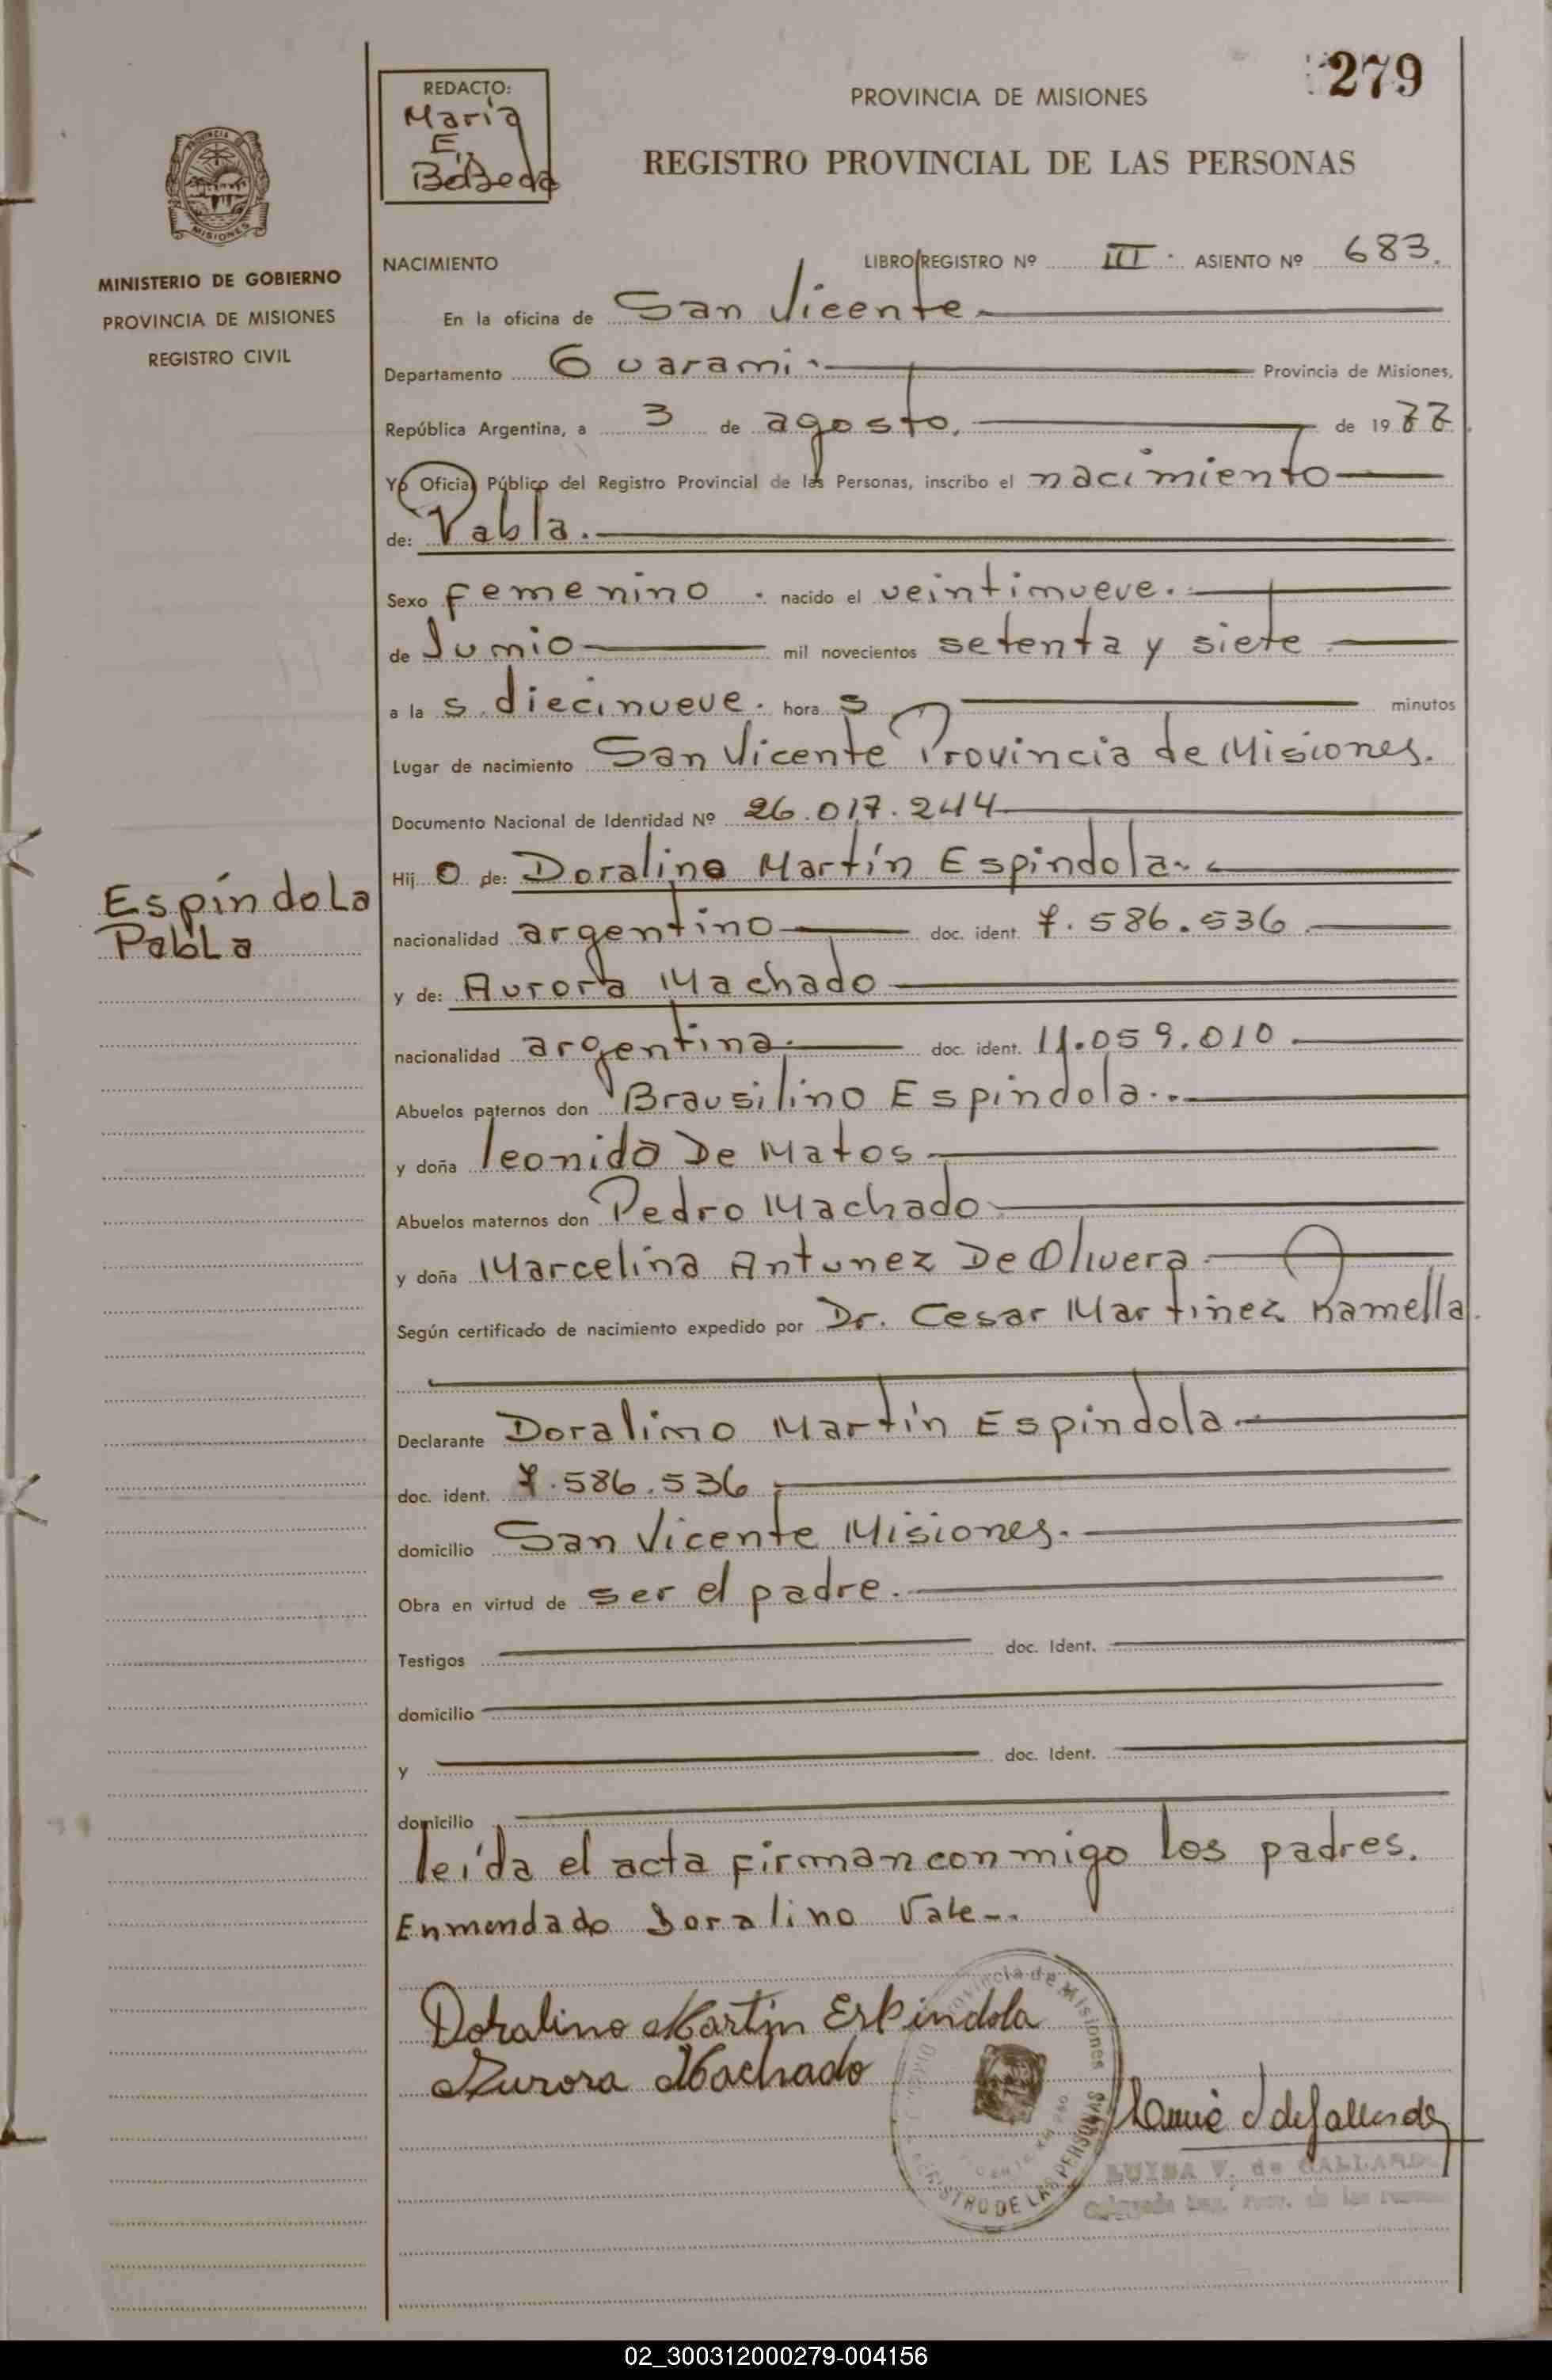 279
REDACTO:
Maria
E.
PROVINCIA DE MISIONES
REGISTRO PROVINCIAL DE LAS PERSONAS
PROVINCIA DE
MISIONES
MINISTERIO DE GOBIERNO
PROVINCIA DE MISIONES
REGISTRO CIVIL
NACIMIENTO LIBRO/REGISTRO Nº III. ASIENTO Nº 683.
En la oficina de San Vicente
Departamento Guarami. Provincia de Misiones,
República Argentina, a 3 de agosto. de 1977.
Yo Oficial Público del Registro Provincial de las Personas, inscribo el nacimiento
de: Pabla.
Sexo Femenino. nacido el veintinueve.
de Junio mil novecientos setenta y siete
a las diecinueve. horas minutos
Lugar de nacimiento San Vicente Provincia de Misiones.
Documento Nacional de Identidad Nº 26.017.244
Hijo de: Doralino Martín Espindola
Espíndola
Pabla
nacionalidad argentino doc. ident. 7.586.536
y de: Aurora Machado
nacionalidad argentina. doc. ident. 11.059.010
Abuelos paternos don Brausilino Espindola.
y doña leonida De Matos
Abuelos maternos don Pedro Machado
y doña Marcelina Antunez De Olivera
Según certificado de nacimiento expedido por Dr. Cesar Martinez Ramella.
Declarante Doralimo Martín Espindola
doc. ident. 7.586.536
domicilio San Vicente Misiones.
Obra en virtud de ser el padre.
Testigos doc. Ident.
domicilio
y doc. Ident.
domicilio
leída el acta firman conmigo los padres.
Enmendado Doralino Vale
Doralino Martin Espindola
Aurora Machado
Provincia de Misiones
REGISTRO DE LAS PERSONAS
LUISA V. de GALLARD
02_300312000279-004156